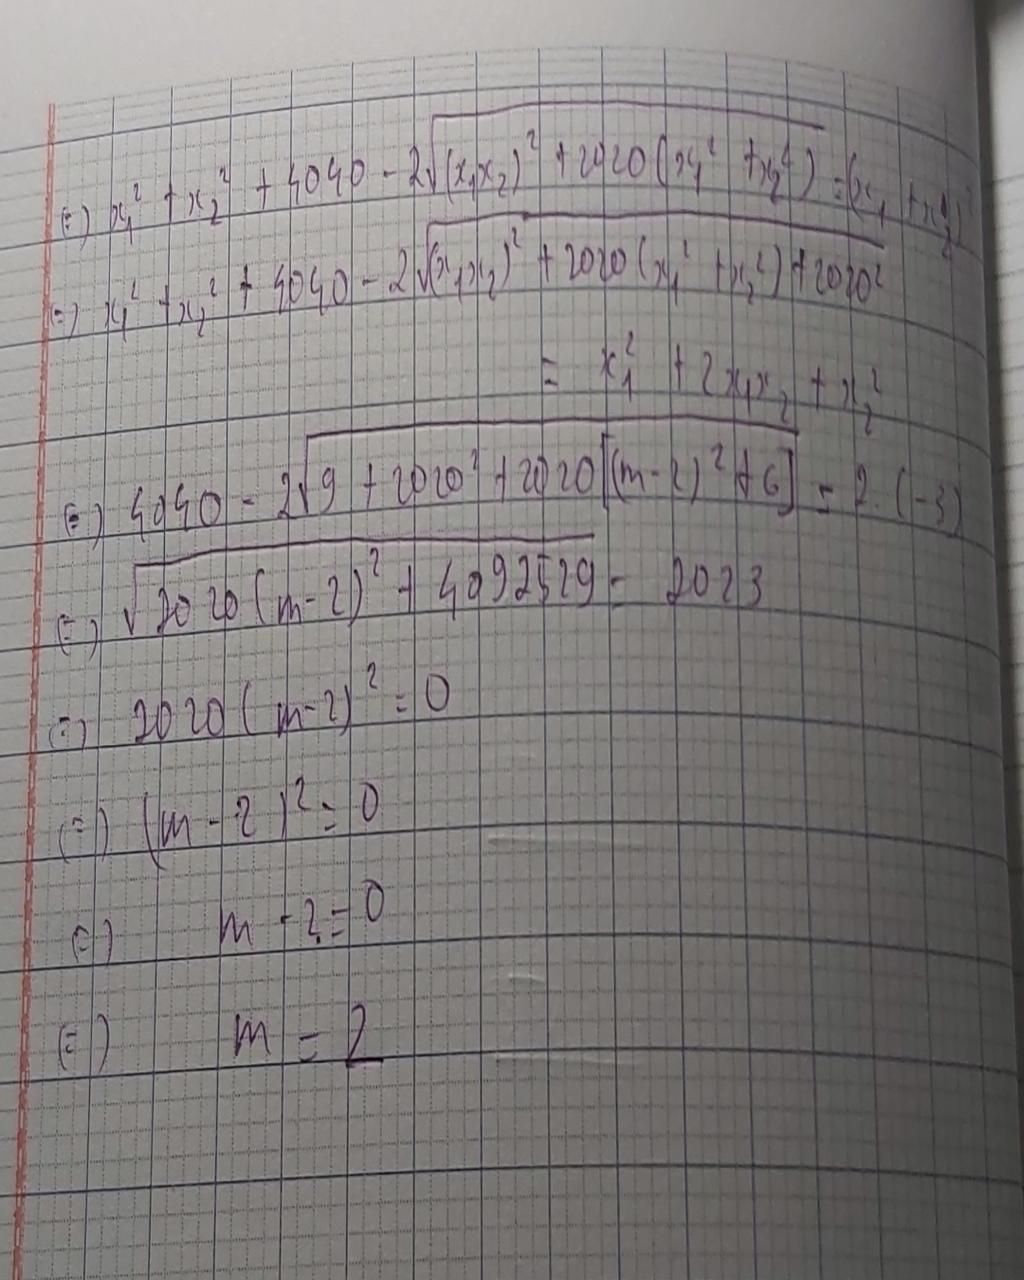 ⇔) x₁² + x₂² + 4040 - 2√((x₁x₂)² + 2020(x₁² + x₂²)) = (x₁ + x₂)²
⇔) x₁² + x₂² + 4040 - 2√((x₁x₂)² + 2020(x₁² + x₂²) + 2020²)
= x₁² + 2x₁x₂ + x₂²
⇔) 4040 - 2√(9 + 2020² + 2020[(m-2)² + 6]) = 2.(-3)
⇔) √(2020(m-2)² + 4092529) = 2023
⇔) 2020(m-2)² = 0
⇔) (m-2)² = 0
⇔) m-2 = 0
⇔) m = 2